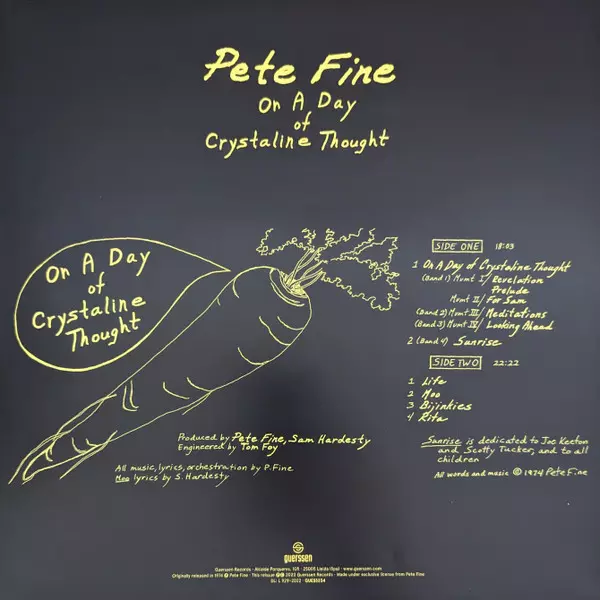 Pete Fine
On A Day
of
Crystaline Thought
On A Day
of
Crystaline
Thought
SIDE ONE 18:03
1 On A Day of Crystaline Thought
(Band 1) Mvmt I/ Revelation
Prelude
Mvmt II/ For Sam
(Band 2) Mvmt III/ Meditations
(Band 3) Mvmt IV/ Looking Ahead
2 (Band 4) Sunrise
SIDE TWO 22:22
1 Life
2 Moo
3 Bijinkies
4 Rita
Produced by Pete Fine, Sam Hardesty
Engineered by Tom Foy
All music, lyrics, orchestration by P. Fine
Moo lyrics by S. Hardesty
Sunrise is dedicated to Joe Keeton
and Scotty Tucker, and to all
children
All words and music © 1974 Pete Fine
guerssen
Guerssen Records · 25005 Lleida (Spa) · www.guerssen.com
Originally released in 1974 ℗ Pete Fine · This reissue ℗© 2022 Guerssen Records · Made under exclusive license from Pete Fine